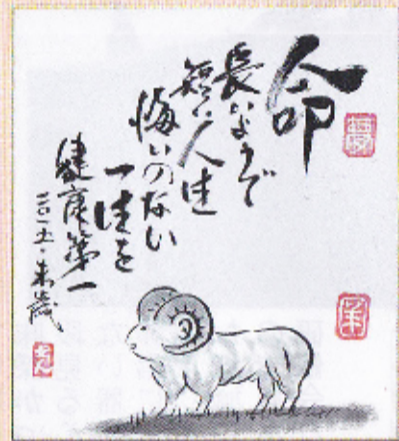 命
長いようで
短い人生
悔いのない
一生を
健康第一
二〇一五・未歳
羊